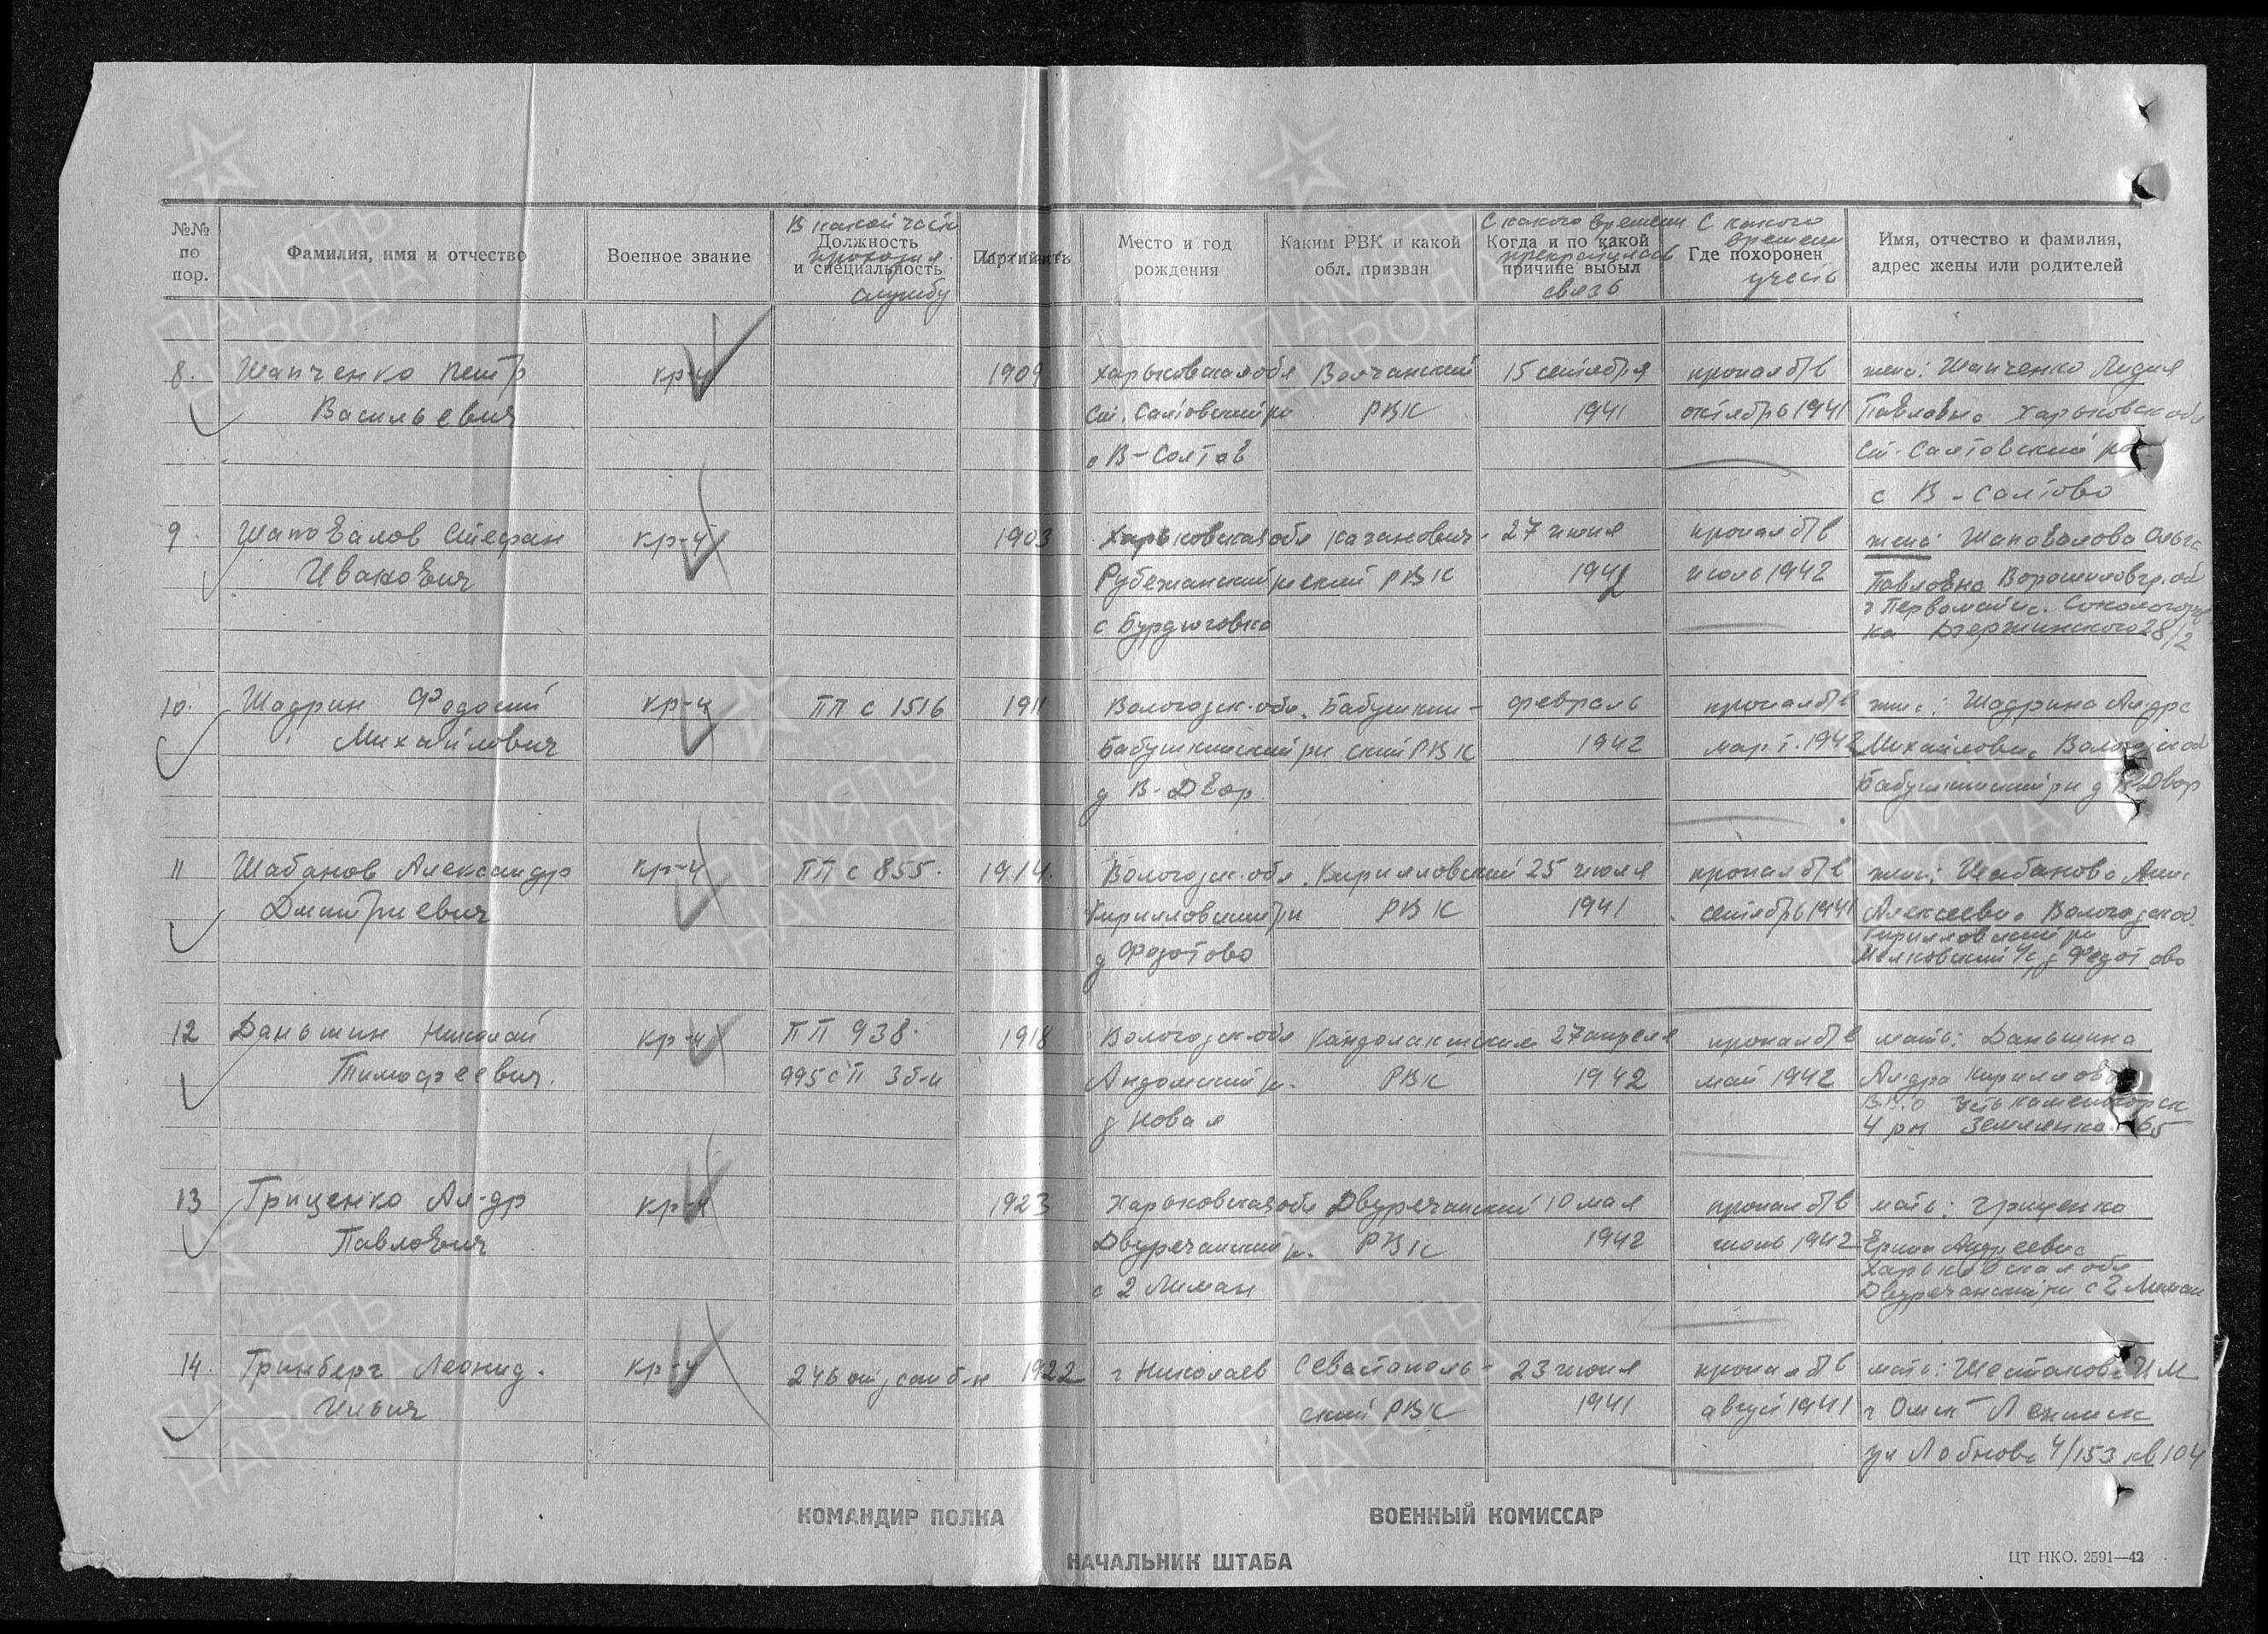 №№ по пор.
Фамилия, имя и отчество
Военное звание
В какой части
Должность
проходил
и специальность
службу
Место и год рождения
Каким РВК и какой обл. призван
С какого времени
Когда и по какой
прекратилась
причине выбыл
связь
С какого
времени
Где похоронен
учесть
Имя, отчество и фамилия, адрес жены или родителей
8. Шапченко Петр кр-ц 1909 Харьковская обл Волчанский 15 сентября пропал б/в жена: Шапченко Лидия
Васильевич Ст. Салтовский рн РВК 1941 октябрь 1941 Павловна Харьковск обл
с В-Солтов Ст. Салтовский рн
с В-Солтово
9. Шаповалов Стефан кр-ц 1903 Харьковская обл Каганович- 27 июня пропал б/в жена: Шаповалова Ольга
Иванович Рубежанский ческий РВК 1942 июль 1942 Павловна Ворошиловгр. об
г Первомайк.
с Бурдюговка ка Дзержинского 28/2
10. Шадрин Федосий кр-ц ПП с 1516 1911 Вологодск. обл. Бабушкин- февраль пропал б/в жена: Шадрина Ал-дра
Михайлович Бабушкинский рн ский РВК 1942 март. 1942 Михайловна Вологодск об
д В-Двор Бабушкинский рн д В-Двор
11 Шабанов Александр кр-ц ПП с 855. 1914. Вологодск. обл. Кирилловский 25 июля пропал б/в жена: Шабанова Анна
Дмитриевич Кирилловский рн РВК 1941 сентябрь 1941 Алексеевна Вологодск об.
Кирилловский рн
д Федотово с/с д Федотово
12 Даньшин Николай кр-ц ПП 938. 1918 Вологодск. обл Кандалакшским 27 апреля пропал б/в мать: Даньшина
Тимофеевич. 995 сп 3 б-н Андомский рн. РВК 1942 май 1942 Ал-дра Кирилловна
В.К.о Усть каменогорск
д Новая 4 рн Землянка 65
13 Гриценко Ал-др кр-ц 1923 Харьковская обл Двуречанский 10 мая пропал б/в мать: Гриценко
Павлович Двуречанский рн. РВК 1942 июнь 1942 Андреевна
Харьковская обл
с 2 Лиман Двуречанский рн с 2 Лиман
14. Гринберг Леонид. кр-ц 246 отд сап б-н 1922 г Николаев Севастополь- 23 июня пропал б/в мать: Шестакова И М
Ильич ский РВК 1941 август 1941 г Омск Ленинск
ул Лобкова 4/153 кв 104
КОМАНДИР ПОЛКА
ВОЕННЫЙ КОМИССАР
НАЧАЛЬНИК ШТАБА
ЦТ НКО. 2591—42
ПАМЯТЬ НАРОДА